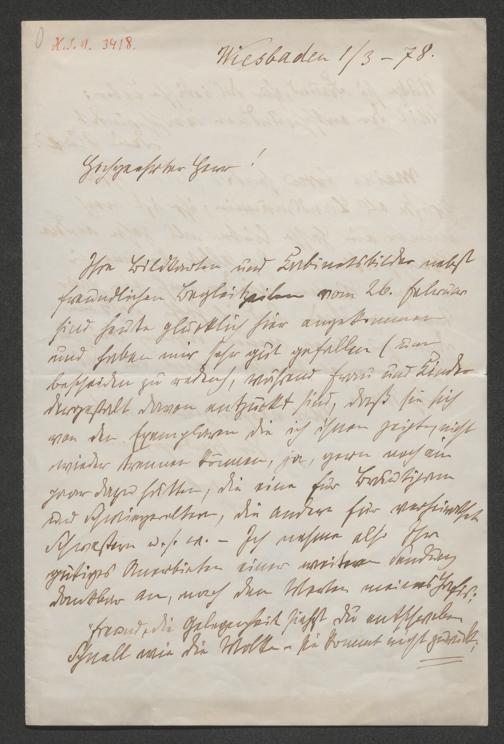 H.I.N. 3418.
Wiesbaden 1/3 – 78.
Hochgeehrter Herr!
Ihre Bildkarten und Cabinetsbilder nebst
freundlichen Begleitzeilen vom 26. Februar
sind heute glücklich hier angekommen
und haben mir sehr gut gefallen (um
bescheiden zu reden), während Frau und Kinder
dergestalt davon entzückt sind, daß sie sich
von den Exemplaren die ich ihnen zeigte, nicht
wieder trennen können, ja, gern noch ein
paar dazu hätten, die eine für Bräutigam
und Schwiegereltern, die andere für verheirathete
Schwestern u. s. w. – Ich nehme also Ihr
gütiges Anerbieten einer weiteren Sendung
dankbar an, nach den Worten meines
"Freund, die Gelegenheit siehst du entschweben
Schnell wie die Wolke – sie kommt nicht zurück,